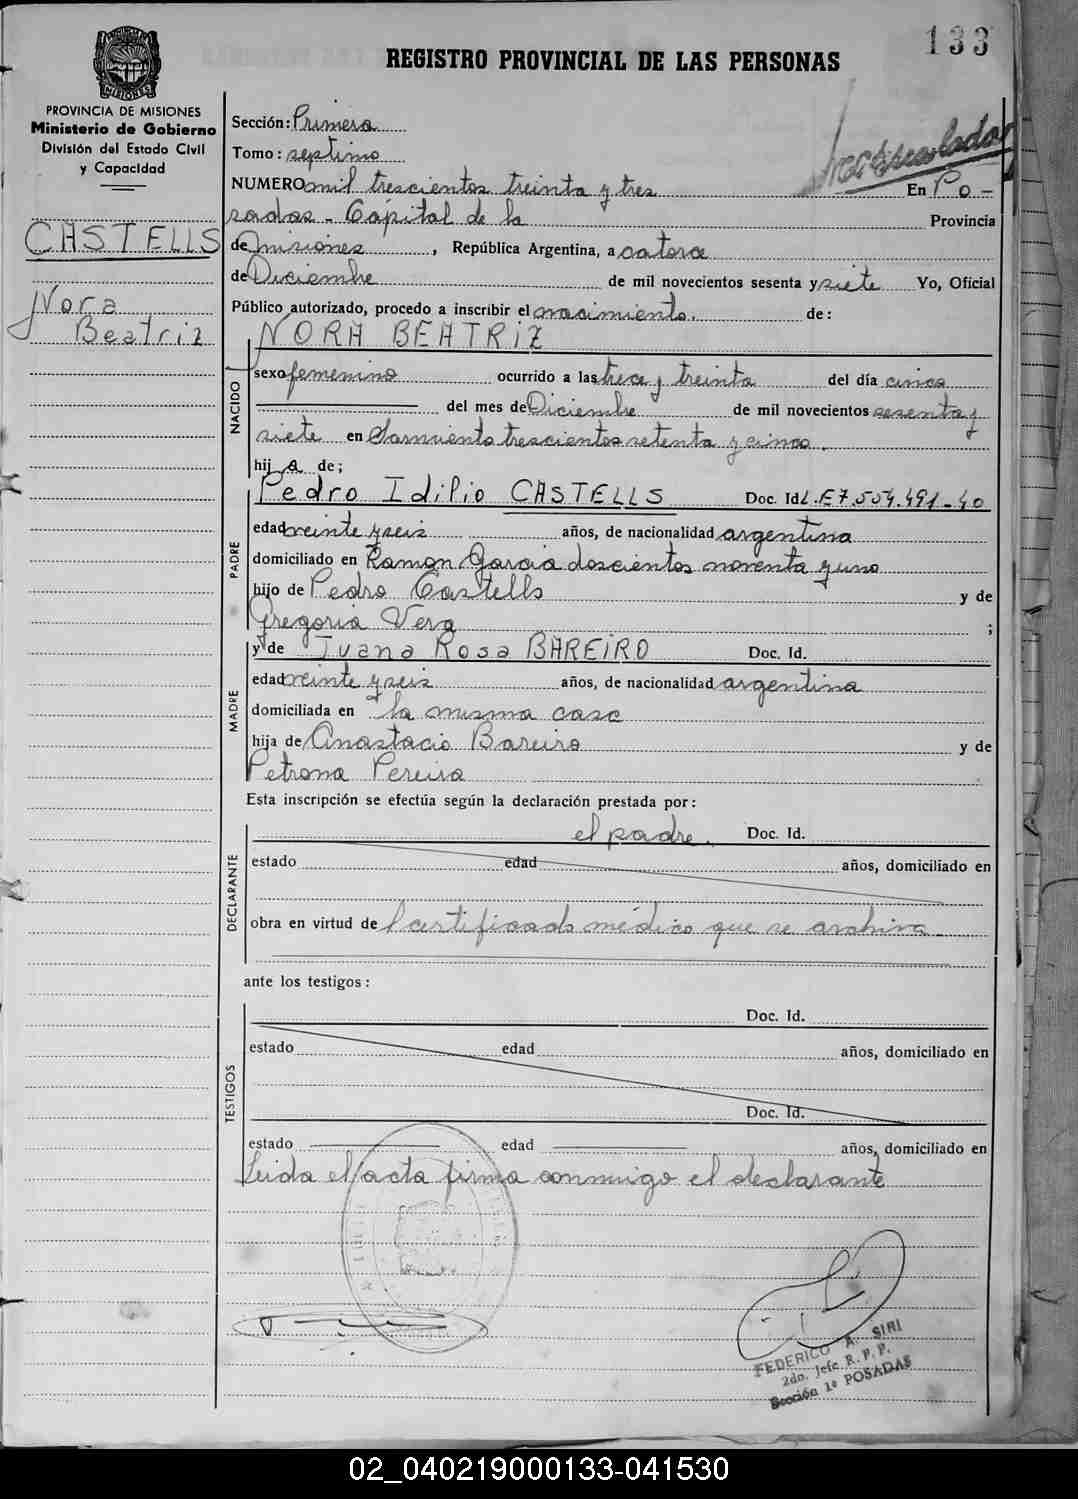 133
REGISTRO PROVINCIAL DE LAS PERSONAS
PROVINCIA DE MISIONES
Ministerio de Gobierno
División del Estado Civil
y Capacidad
CASTELLS
Nora
Beatriz
Matriculado
Sección: Primera
Tomo: septimo
NUMERO mil trescientos treinta y tres En Po-
sadas - Capital de la Provincia
de Misiones, República Argentina, a catorce
de Diciembre de mil novecientos sesenta y siete Yo, Oficial
Público autorizado, procedo a inscribir el nacimiento. de:
NORA BEATRIZ
NACIDO
sexo femenino ocurrido a las trece y treinta del día cinco
del mes de Diciembre de mil novecientos sesenta y
siete en Sarmiento trescientos setenta y cinco.
hija de;
PADRE
Pedro Idilio CASTELLS Doc. Id L.E 7.554.491-40
edad veinte y seis años, de nacionalidad argentina
domiciliado en Ramon Garcia doscientos noventa y uno
hijo de Pedro Castells y de
Gregoria Vera ;
MADRE
y de Juana Rosa BAREIRO Doc. Id.
edad veinte y seis años, de nacionalidad argentina
domiciliada en la misma casa
hija de Anastacio Bareiro y de
Petrona Pereira
Esta inscripción se efectúa según la declaración prestada por:
DECLARANTE
el padre. Doc. Id.
estado edad años, domiciliado en
obra en virtud de l certificado médico que se archiva
ante los testigos:
TESTIGOS
Doc. Id.
estado edad años, domiciliado en
Doc. Id.
estado edad años, domiciliado en
Leida el acta firma conmigo el declarante
FEDERICO A. SIRI
2do. Jefe R. P. P.
Sección 1º POSADAS
02_040219000133-041530